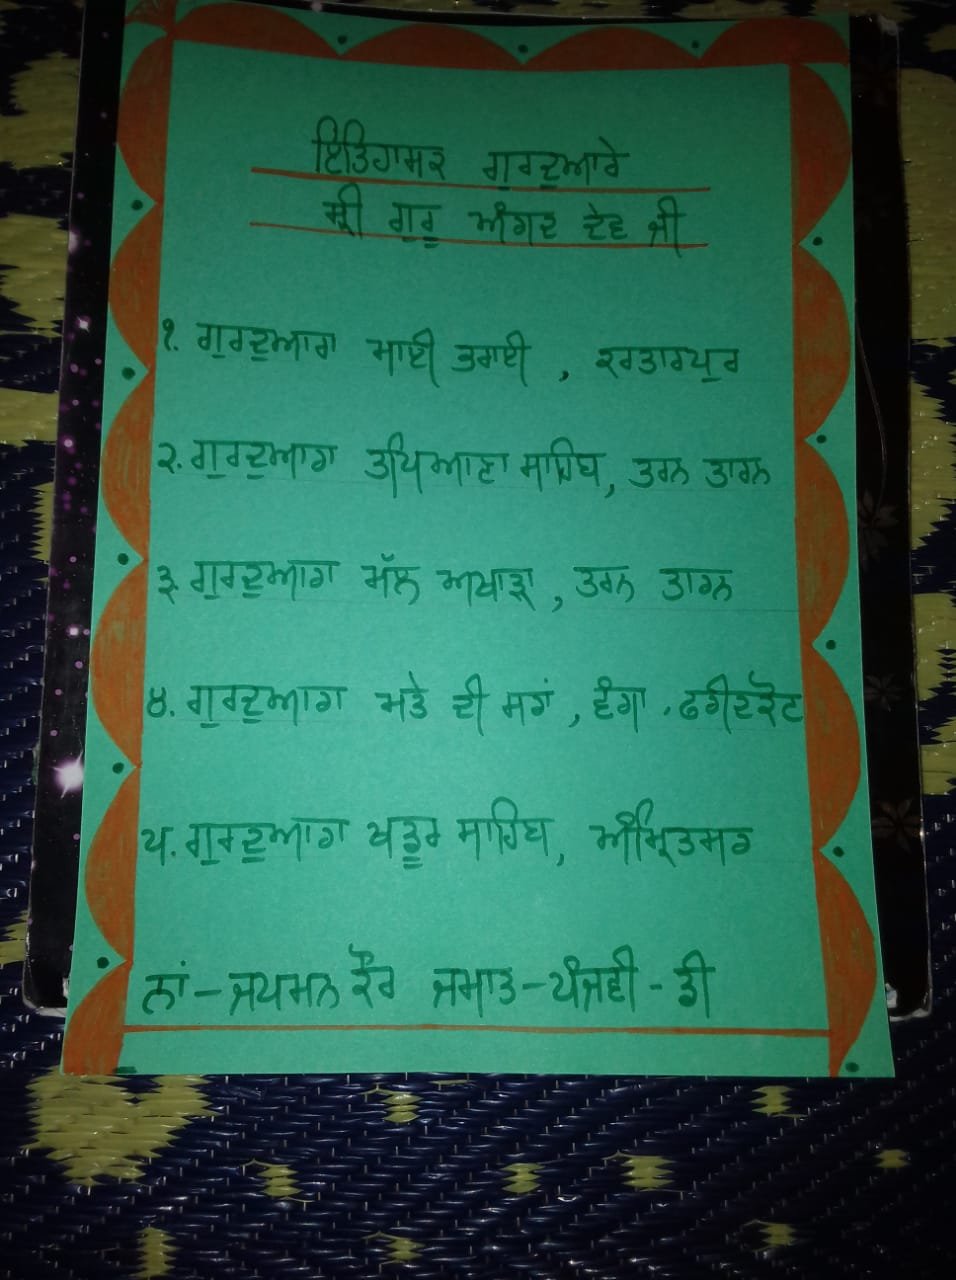 ਇਤਿਹਾਸਕ ਗੁਰਦੁਆਰੇ
ਸ੍ਰੀ ਗੁਰੂ ਅੰਗਦ ਦੇਵ ਜੀ
੧. ਗੁਰਦੁਆਰਾ ਮਾਈ ਤਰਾਈ , ਕਰਤਾਰਪੁਰ
੨. ਗੁਰਦੁਆਰਾ ਤਪਿਆਣਾ ਸਾਹਿਬ, ਤਰਨ ਤਾਰਨ
੩. ਗੁਰਦੁਆਰਾ ਮੱਲ ਅਖਾੜਾ , ਤਰਨ ਤਾਰਨ
੪. ਗੁਰਦੁਆਰਾ ਮਤੇ ਦੀ ਸਰਾਂ , ਵੰਗਾ . ਫਰੀਦਕੋਟ
੫. ਗੁਰਦੁਆਰਾ ਖਡੂਰ ਸਾਹਿਬ, ਅੰਮ੍ਰਿਤਸਰ
ਨਾਂ - ਜਪਮਨ ਕੌਰ ਜਮਾਤ - ਪੰਜਵੀ - ਡੀ